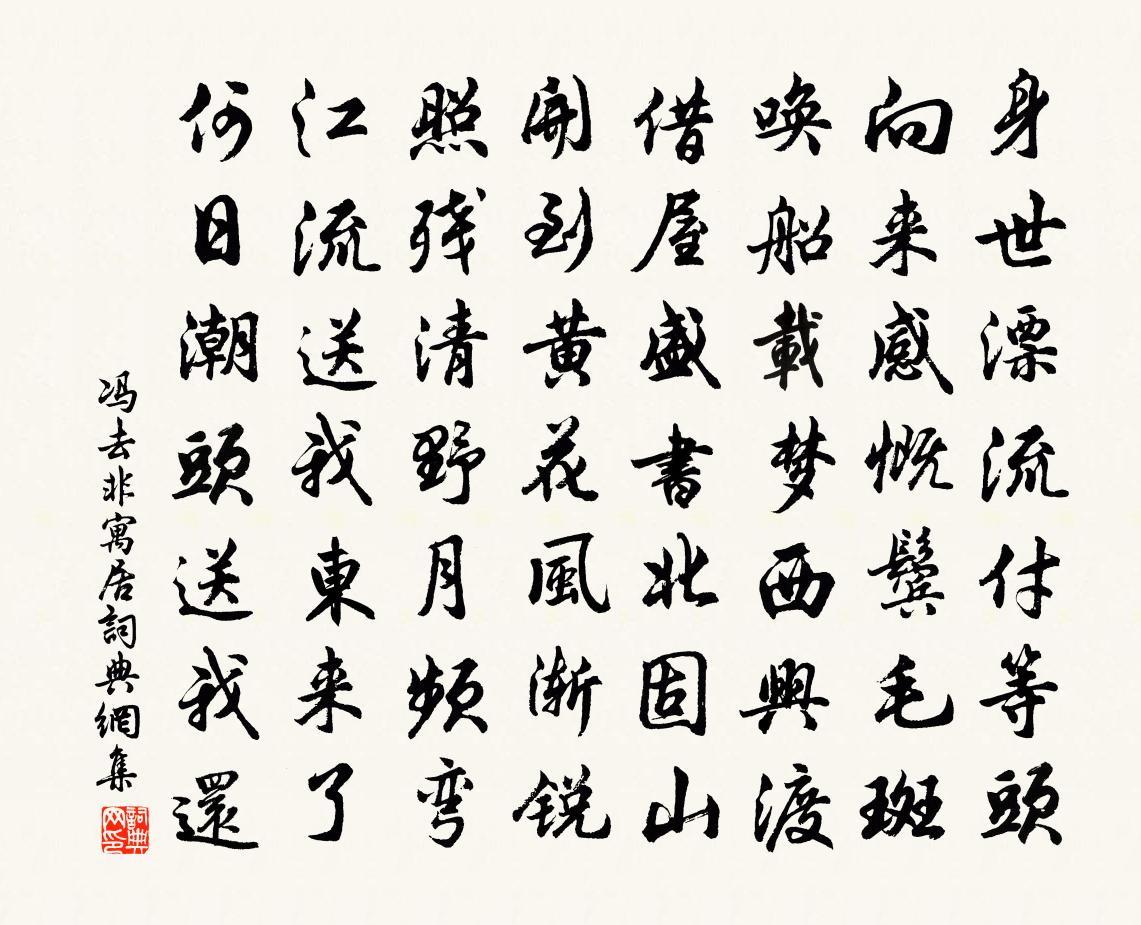 身世漂流付等頭
向来感慨鬓毛斑
唤船載梦西興渡
借屋盛書北固山
開到黄花風渐锐
照残清野月頻弯
江流送我東来了
何日潮頭送我還
冯去非寓居詞典網集
詞典网印